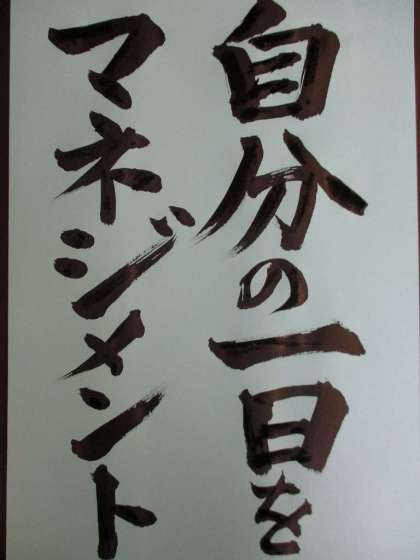 自分の一日を
マネジメント